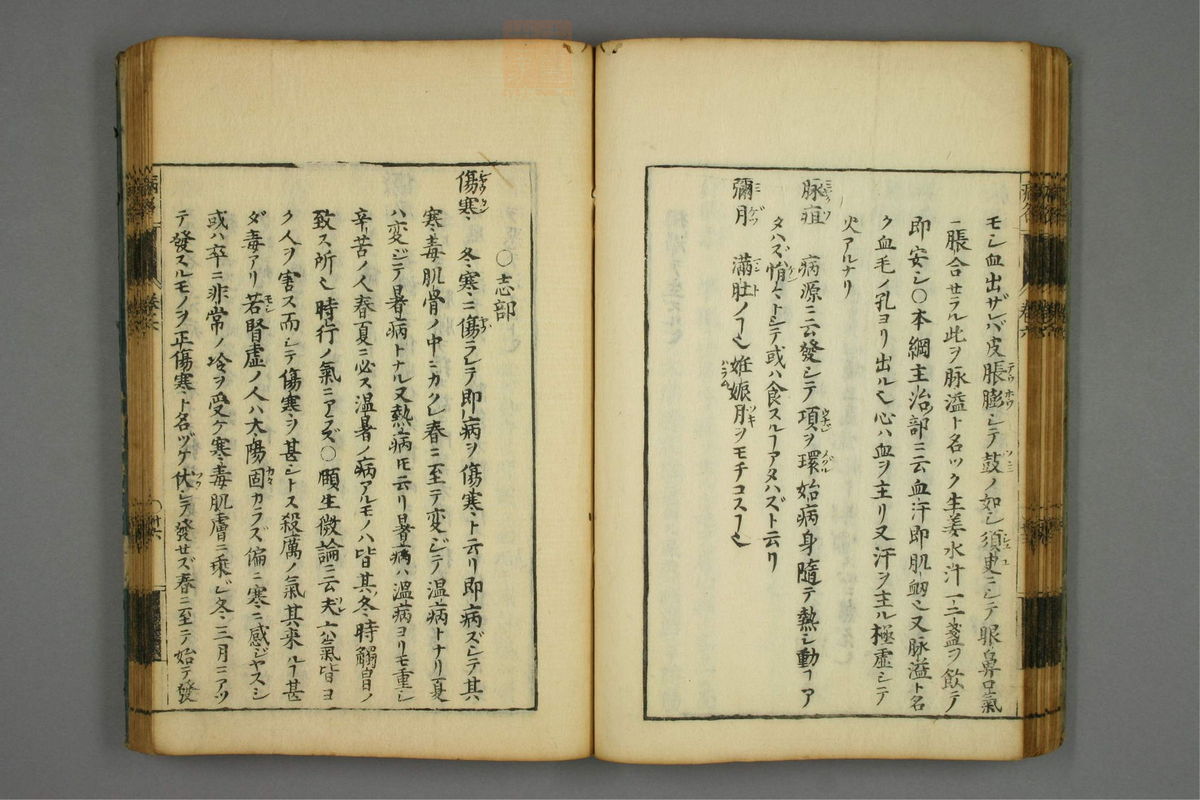 モシ血出ザレバ皮脹膨シテ鼓ノ如シ須臾ニシテ眼鼻口氣
脹合セラル此ヲ脉溢ト名ツク生姜水汁一二盞ヲ飲テ
即安シ〇本綱主治部ニ云血汗即肌衂也又脉溢ト名
ク血毛ノ孔ヨリ出ル也心ハ血ヲ主リ又汗ヲ主ル極虚シテ
火アルナリ
脉疽 病源ニ云發シテ項ヲ環始病身隨テ熱シ動ヿア
タハズ悄々トシテ或ハ食スルヿアタハズト云リ
彌月 滿肚ノヿ也妊娠月ヲモチコスヿ也
〇志部
傷寒 冬寒ニ傷ラレテ即病ヲ傷寒ト云リ即病ズシテ其
寒毒肌骨ノ中ニカクレ春ニ至テ変ジテ温病トナリ夏
ハ変ジテ暑病トナル又熱病ﾄﾓ云リ暑病ハ温病ヨリモ重シ
辛苦ノ人春夏ニ必ス温暑ノ病アルモノハ皆其冬時觸冒ノ
致ス所也時行ノ氣ニアラズ〇頤生微論ニ云夫六氣皆ヨ
ク人ヲ害ス而シテ傷寒ヲ甚シトス殺萬ノ氣其来ルヿ甚
ダ毒アリ若腎虚ノ人ハ太陽固カラズ偏ニ寒ニ感ジヤスシ
或ハ卒ニ非常ノ冷ヲ受ケ寒毒肌膚ニ乗ジ冬三月ニアツ
テ發スルモノヲ正傷寒ト名ヅケ伏シテ發セズ春ニ至テ始テ發